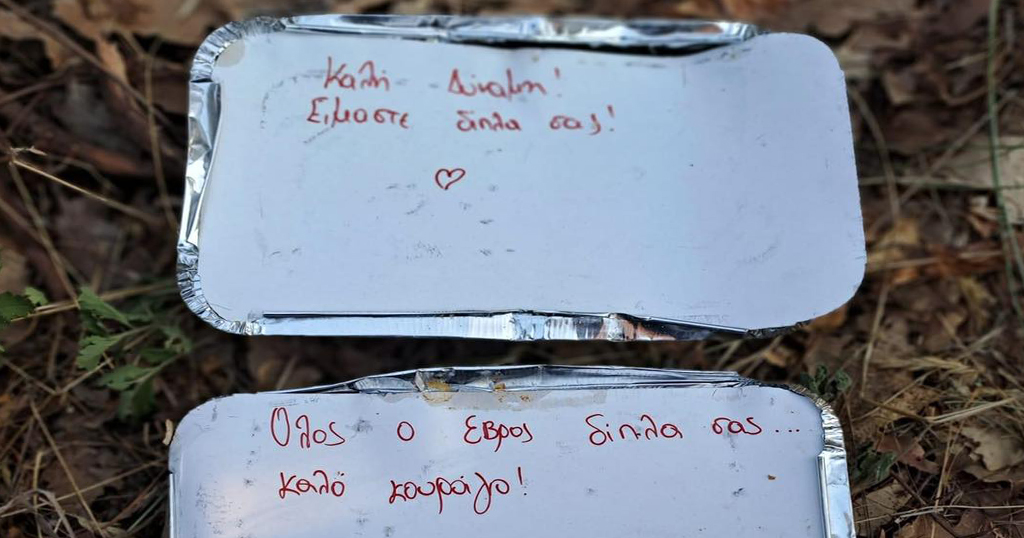 Καλή Δύναμη!
Είμαστε δίπλα σας!
Όλος ο Έβρος δίπλα σας...
καλό κουράγιο!